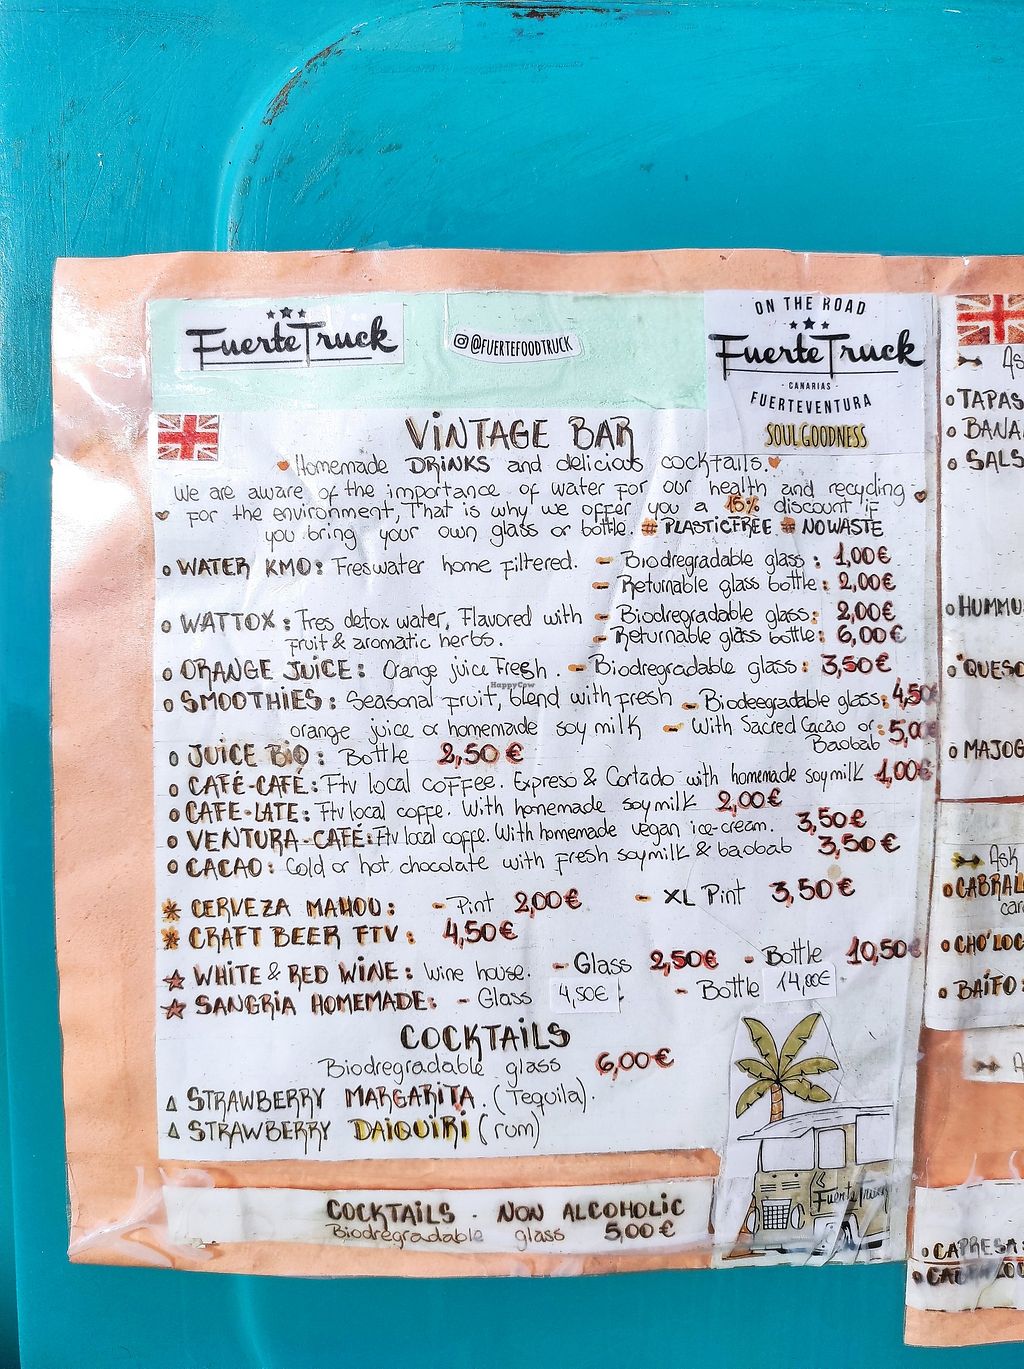 FuerteTruck
@FUERTEFOODTRUCK
ON THE ROAD
FuerteTruck
- CANARIAS -
FUERTEVENTURA
SOUL GOODNESS
VINTAGE BAR
Homemade DRINKS and delicious cocktails.
We are aware of the importance of water for our health and recycling
for the environment, That is why we offer you a 15% discount if
you bring your own glass or bottle. # PLASTICFREE # NOWASTE
WATER KM0: Freswater home filtered. - Biodregradable glass: 1,00€
- Returnable glass bottle: 2,00€
WATTOX: Fres detox water, Flavored with - Biodregradable glass: 2,00€
fruit & aromatic herbs. - Returnable glass bottle: 6,00€
ORANGE JUICE: Orange juice Fresh. - Biodregradable glass: 3,50€
HappyCow
SMOOTHIES: Seasonal fruit, blend with fresh - Biodeegradable glass: 4,50€
orange juice or homemade soy milk - With Sacred Cacao or: 5,00€
Baobab
JUICE BIO: Bottle 2,50€
CAFÉ-CAFÉ: Ftv local coffee. Expreso & Cortado with homemade soymilk 1,00€
CAFE-LATE: Ftv local coffe. With honemade soymilk 2,00€
VENTURA-CAFÉ: Ftv local coffe. With homemade vegan ice-cream. 3,50€
CACAO: Cold or hot chocolate with fresh soymilk & baobab 3,50€
CERVEZA MAHOU: - Pint 2,00€ - XL Pint 3,50€
CRAFT BEER FTV: 4,50€
WHITE & RED WINE: Wine house. - Glass 2,50€ - Bottle 10,50€
SANGRIA HOMEMADE: - Glass 4,50€ - Bottle 14,00€
COCKTAILS
Biodregradable glass 6,00€
STRAWBERRY MARGARITA. (Tequila).
STRAWBERRY DAIQUIRI (rum)
FuerteTruck
COCKTAILS - NON ALCOHOLIC
Biodregradable glass 5,00€
As
TAPAS
BANA
SALS
HUMMU
QUESO
MAJO
Ask
CABRAL
car
CHO'LOC
BAIFO:
A
CAPRESA: